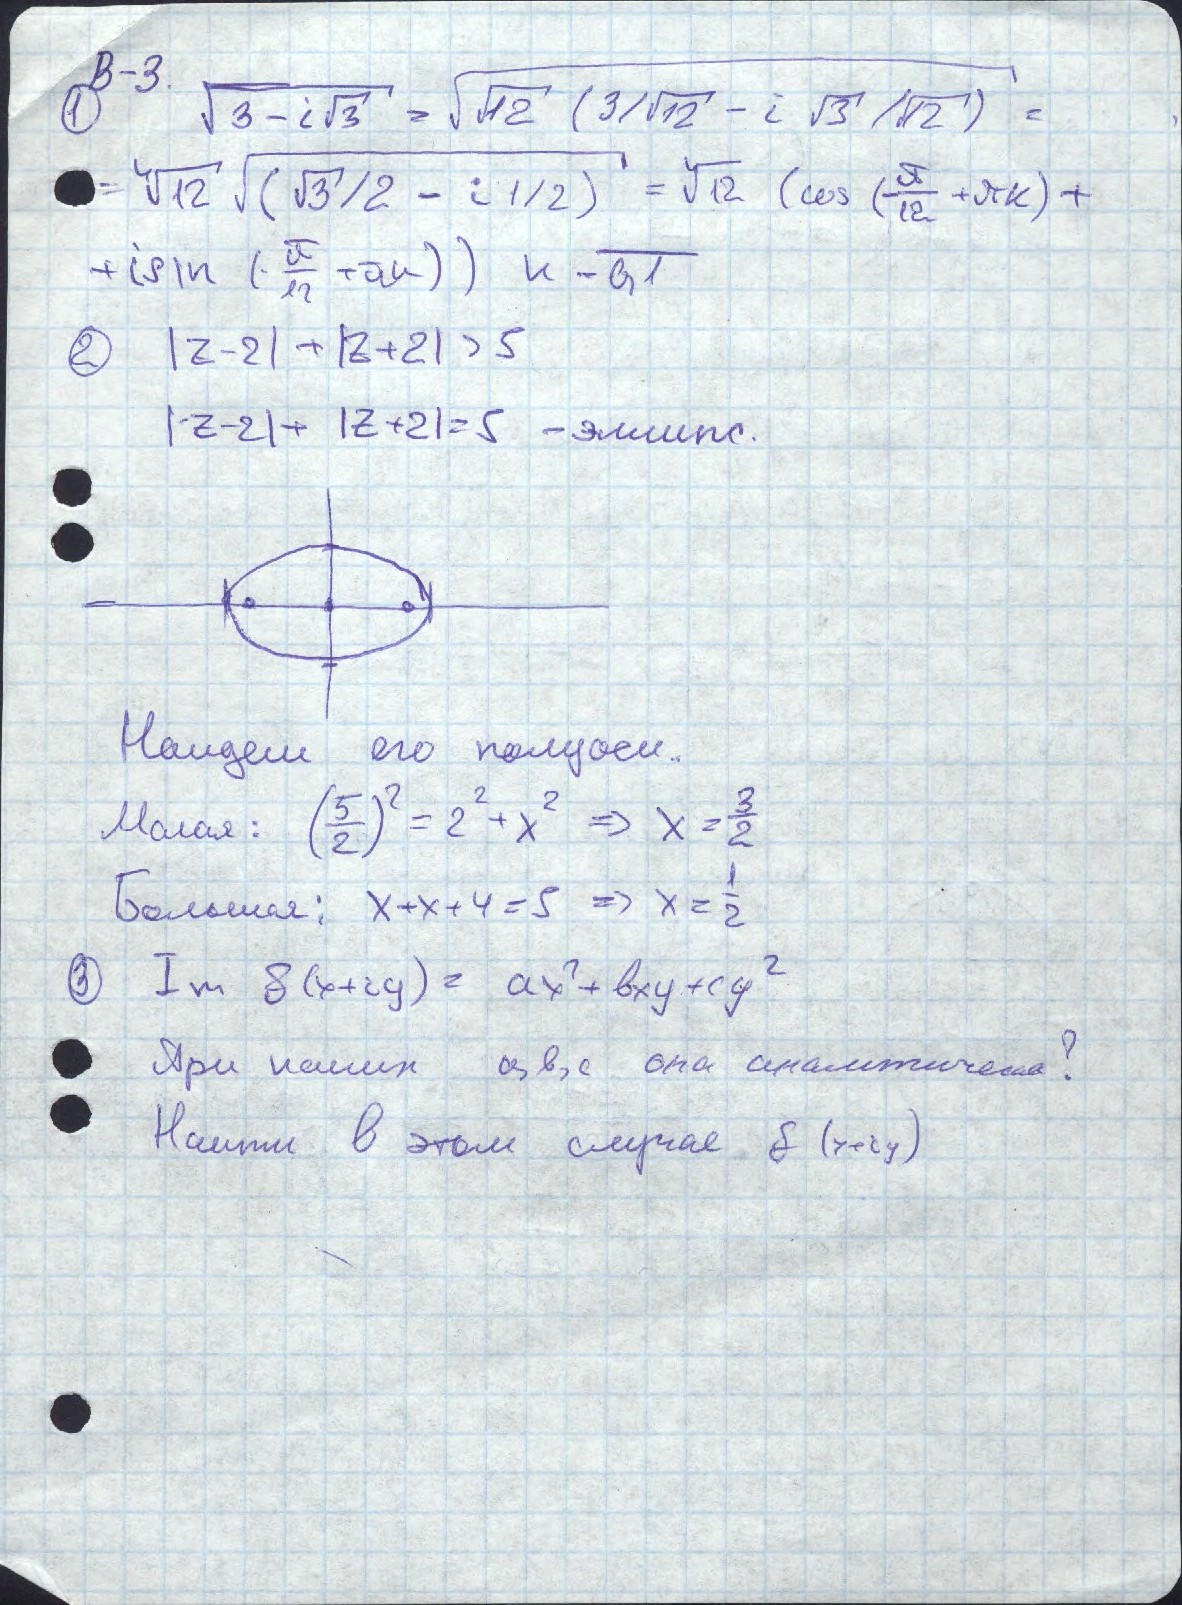 В-3.
① √(3 - i√3) = √(√12 (3/√12 - i √3/√12)) =
= ∜12 √(√3/2 - i 1/2) = ∜12 (cos (-π/12 + πk) +
+ i sin (-π/12 + πk)) k = 0,1
② |z-2| + |z+2| > 5
|z-2| + |z+2| = 5 - эллипс.
Найдем его полуоси.
Малая: (5/2)² = 2² + x² => x = 3/2
Большая: x+x+4=5 => x = 1/2
③ Im f(x+iy) = ax² + bxy + cy²
При каких a,b,c она аналитична?
Найти в этом случае f(x+iy)